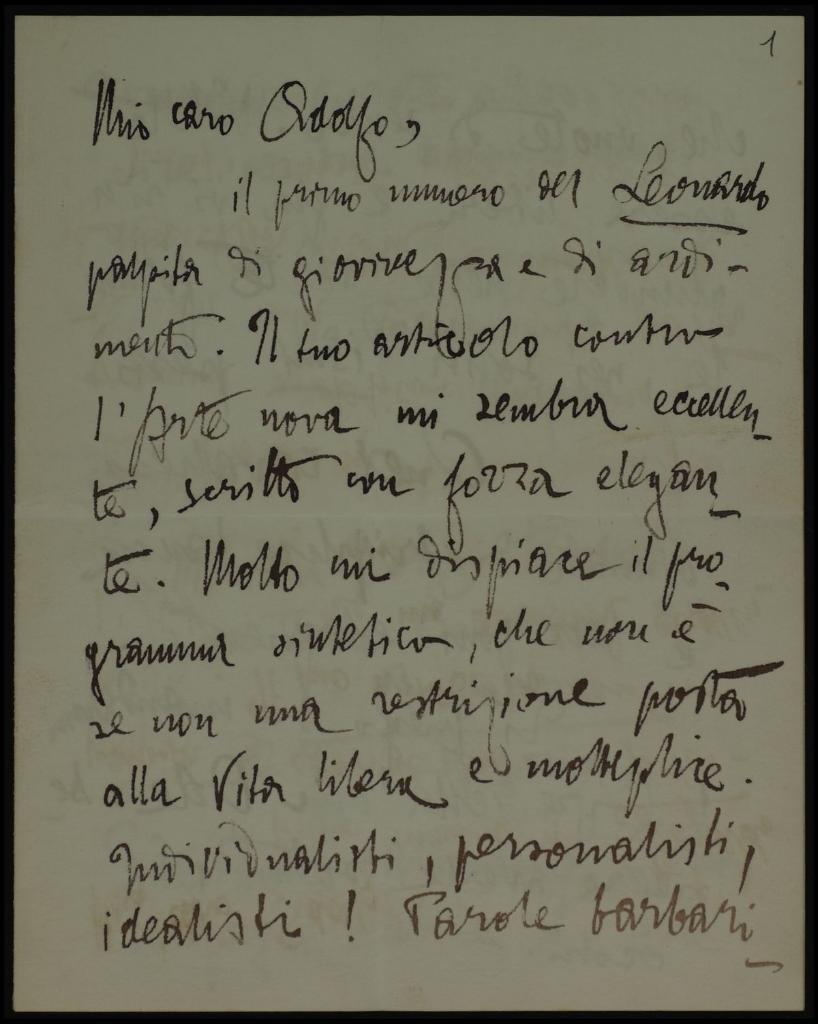 1
Mio caro Adolfo,
il primo numero del Leonardo
palpita di giovinezza e di ardi-
mento. Il tuo articolo contro
l'Arte nova mi sembra eccellen-
te, scritto con forza elegan-
te. Molto mi dispiace il pro-
gramma sintetico, che non è
se non una restrizione posta
alla Vita libera e molteplice.
Individualisti, personalisti,
idealisti! Parole barbari-